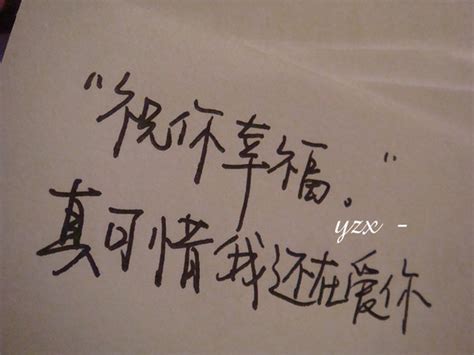 “祝你幸福。”
yzx -
真可惜我还在爱你